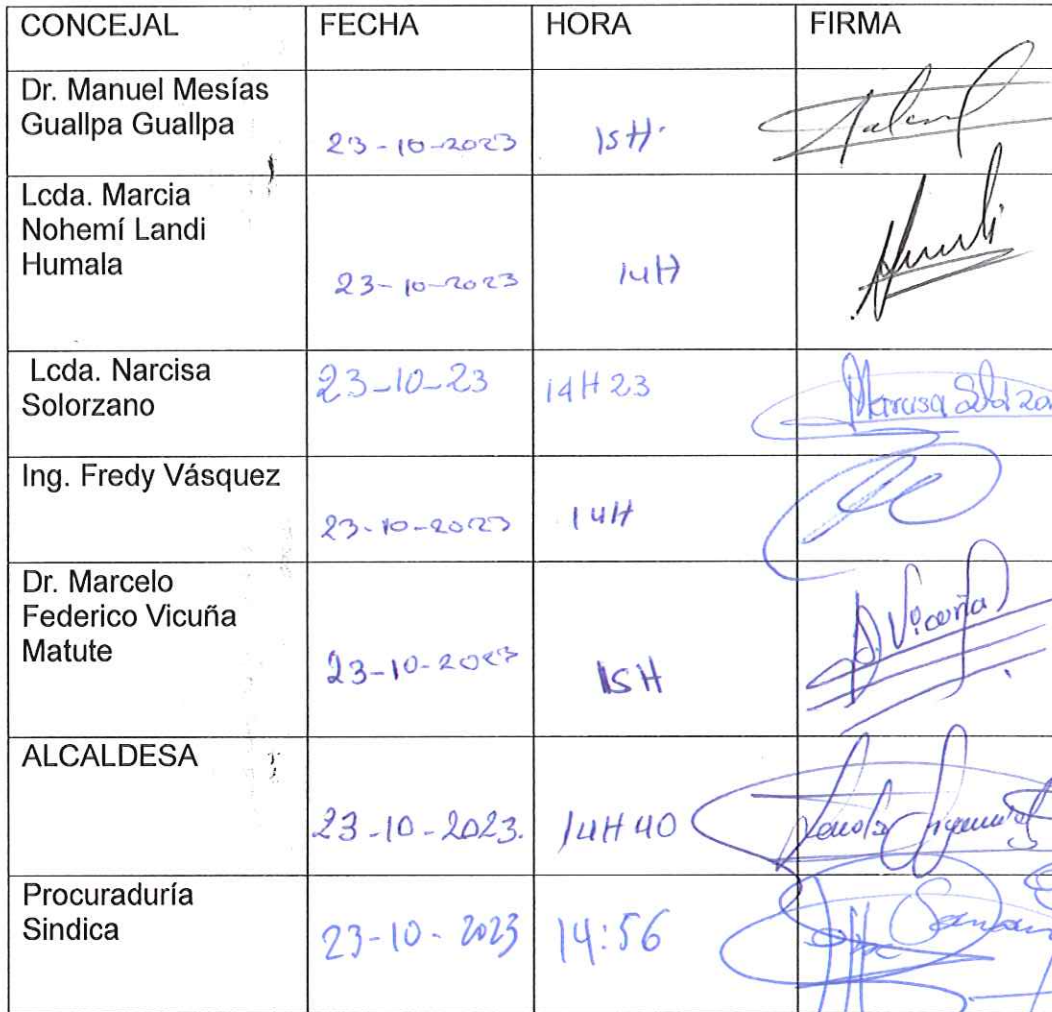 CONCEJAL FECHA HORA FIRMA
Dr. Manuel Mesías
Guallpa Guallpa
23-10-2023 15H
Lcda. Marcia
Nohemí Landi
Humala
23-10-2023 14H
Lcda. Narcisa
Solorzano
23-10-23 14H23
Ing. Fredy Vásquez
23-10-2023 14H
Dr. Marcelo
Federico Vicuña
Matute
23-10-2023 15H
Vicuña
ALCALDESA
23-10-2023. 14H40
Procuraduría
Sindica
23-10-2023 14:56